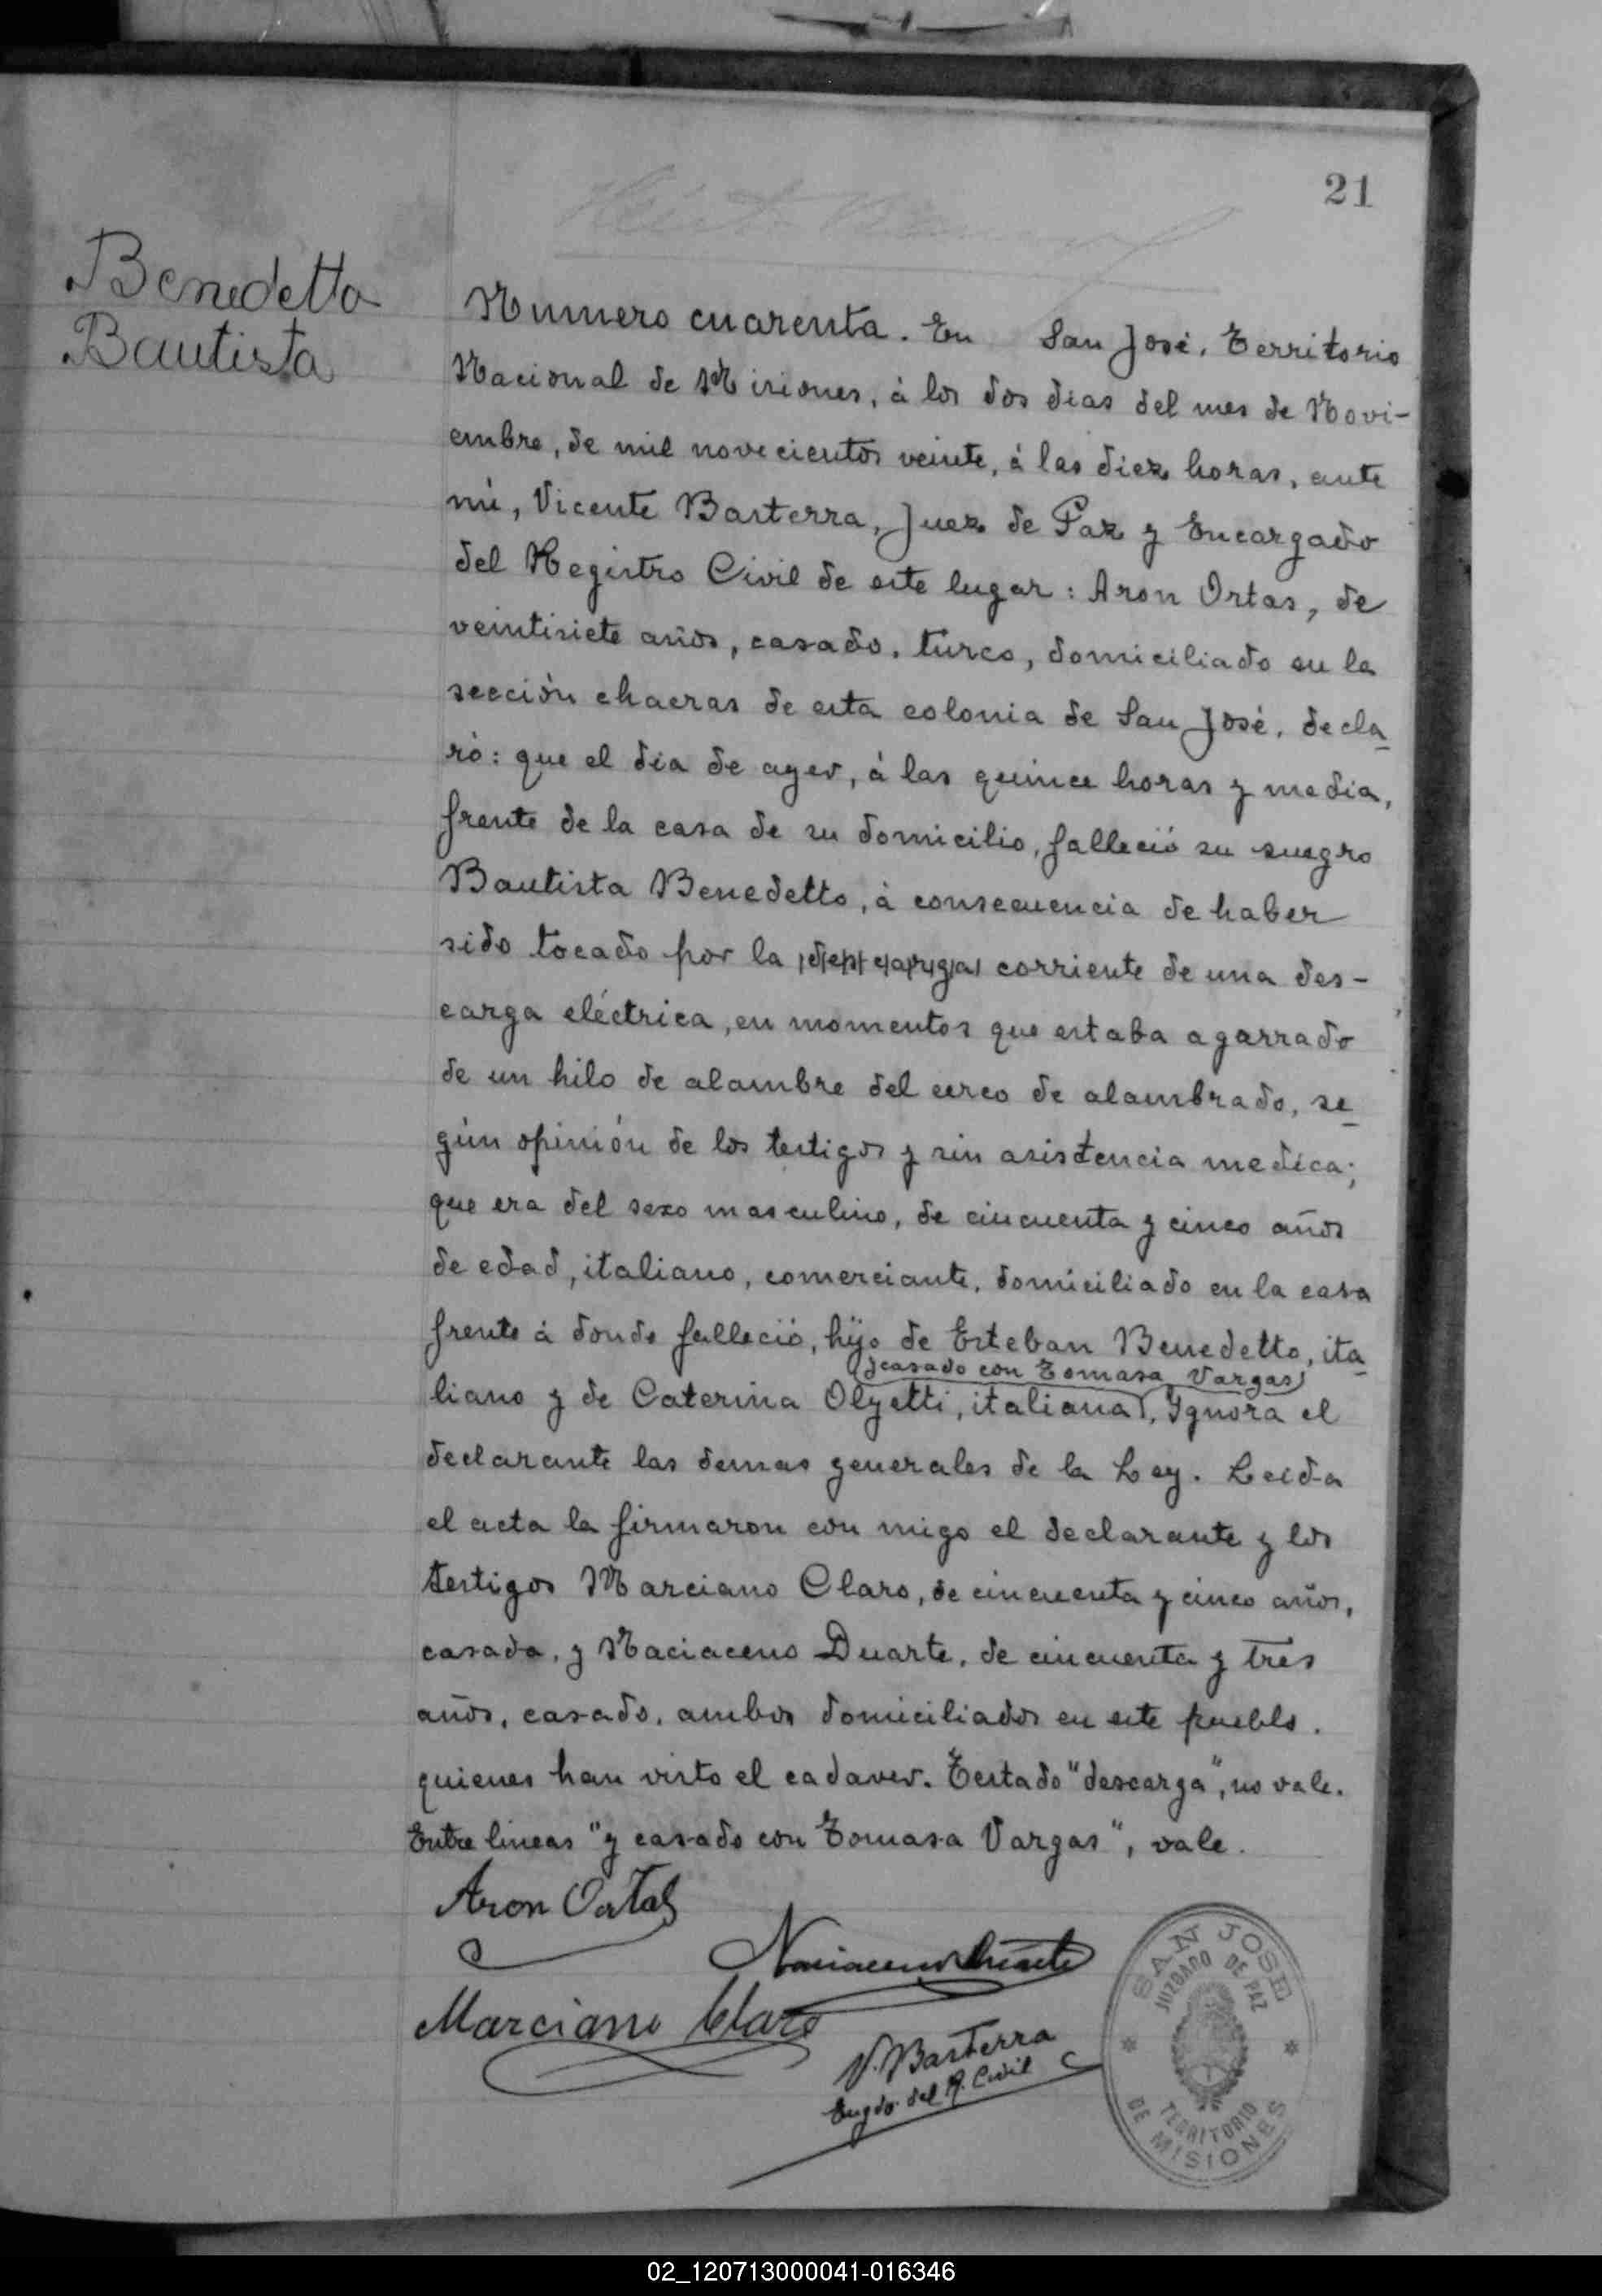 21
Benedetto
Bautista
Numero cuarenta. En San José, Territorio
Nacional de Misiones, à los dos dias del mes de Novi-
embre, de mil novecientos veinte, à las diez horas, ante
mi, Vicente Basterra, Juez de Paz y Encargado
del Registro Civil de este lugar: Aron Ortas, de
veintisiete años, casado, turco, domiciliado en la
sección chacras de esta colonia de San José, decla
ró: que el dia de ayer, à las quince horas y media,
frente de la casa de su domicilio, falleció su suegro
Bautista Benedetto, à consecuencia de haber
sido tocado por la descarga corriente de una des-
carga eléctrica, en momentos que estaba agarrado
de un hilo de alambre del cerco de alambrado, se
gún opinión de los testigos y sin asistencia medica;
que era del sexo masculino, de cincuenta y cinco años
de edad, italiano, comerciante, domiciliado en la casa
frente à donde falleció, hijo de Esteban Benedetto, ita
y casado con Tomasa Vargas
liano y de Caterina Olgetti, italiana, Ygnora el
declarante las demas generales de la Ley. Leida
el acta la firmaron con migo el declarante y los
testigos Marciano Claro, de cincuenta y cinco años,
casado, y Naciaceno Duarte, de cincuenta y tres
años, casado, ambos domiciliados en este pueblo.
quienes han visto el cadaver. Testado "descarga", no vale.
Entre lineas "y casado con Tomasa Vargas", vale.
Aron Ortas
Naciaceno Duarte
Marciano Claro
V. Basterra
Engdo. del R. Civil
SAN JOSE
JUZGADO DE PAZ
TERRITORIO
DE MISIONES
02_120713000041-016346